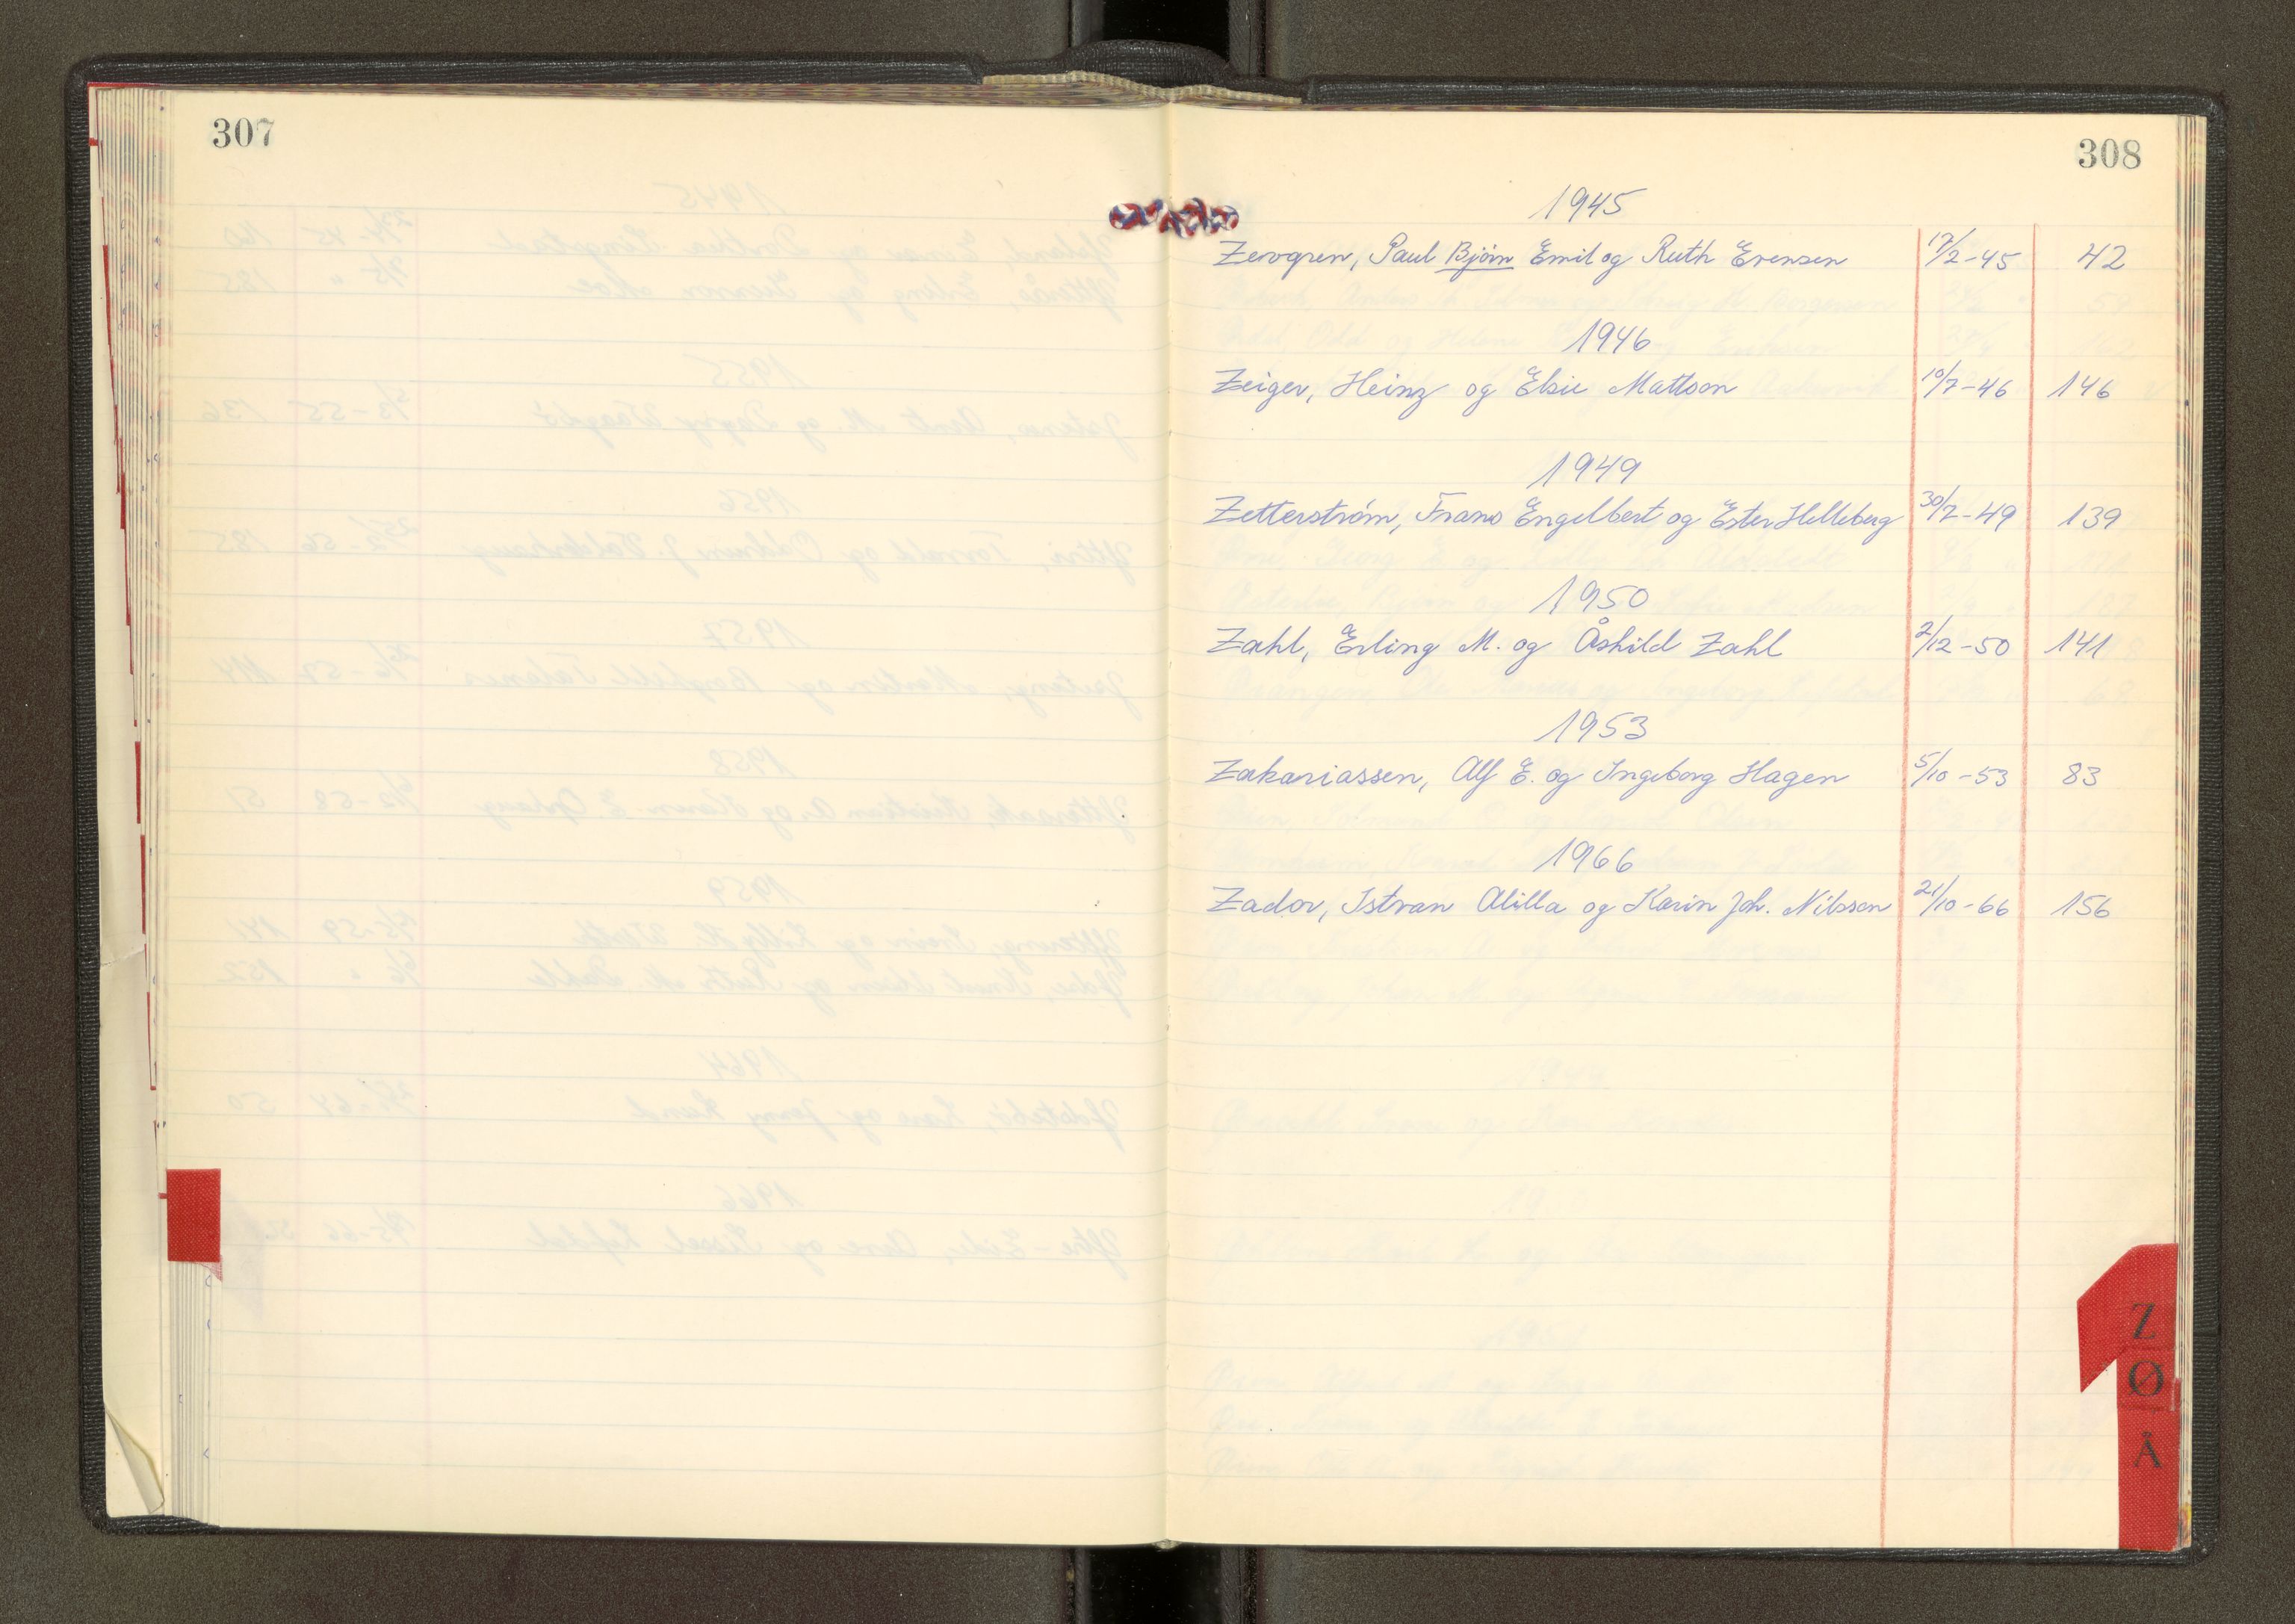 307
308
1945
Zervgren, Paul Bjørn Emil og Ruth Evensen 17/2-45 42
1946
Zeiger, Heinz og Elsie Mattson 10/7-46 146
1949
Zetterstrøm, Frans Engelbert og Ester Helleberg 30/7-49 139
1950
Zahl, Erling M. og Åshild Zahl 2/12-50 141
1953
Zakariassen, Alf E. og Ingeborg Hagen 5/10-53 83
1966
Zador, Istvan Atilla og Karin Joh. Nilsson 21/10-66 156
Z
Ø
Å